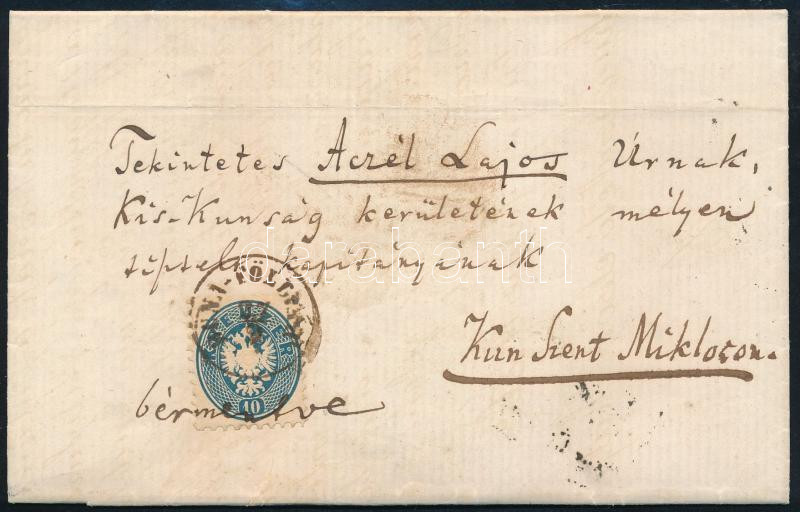 Tekintetes Aczél Lajos Úrnak,
Kis-Kunság kerületének mélyen
kapitányának
Kun Szent Mikloson.
bérmentve
KREUZER
10
darabanth